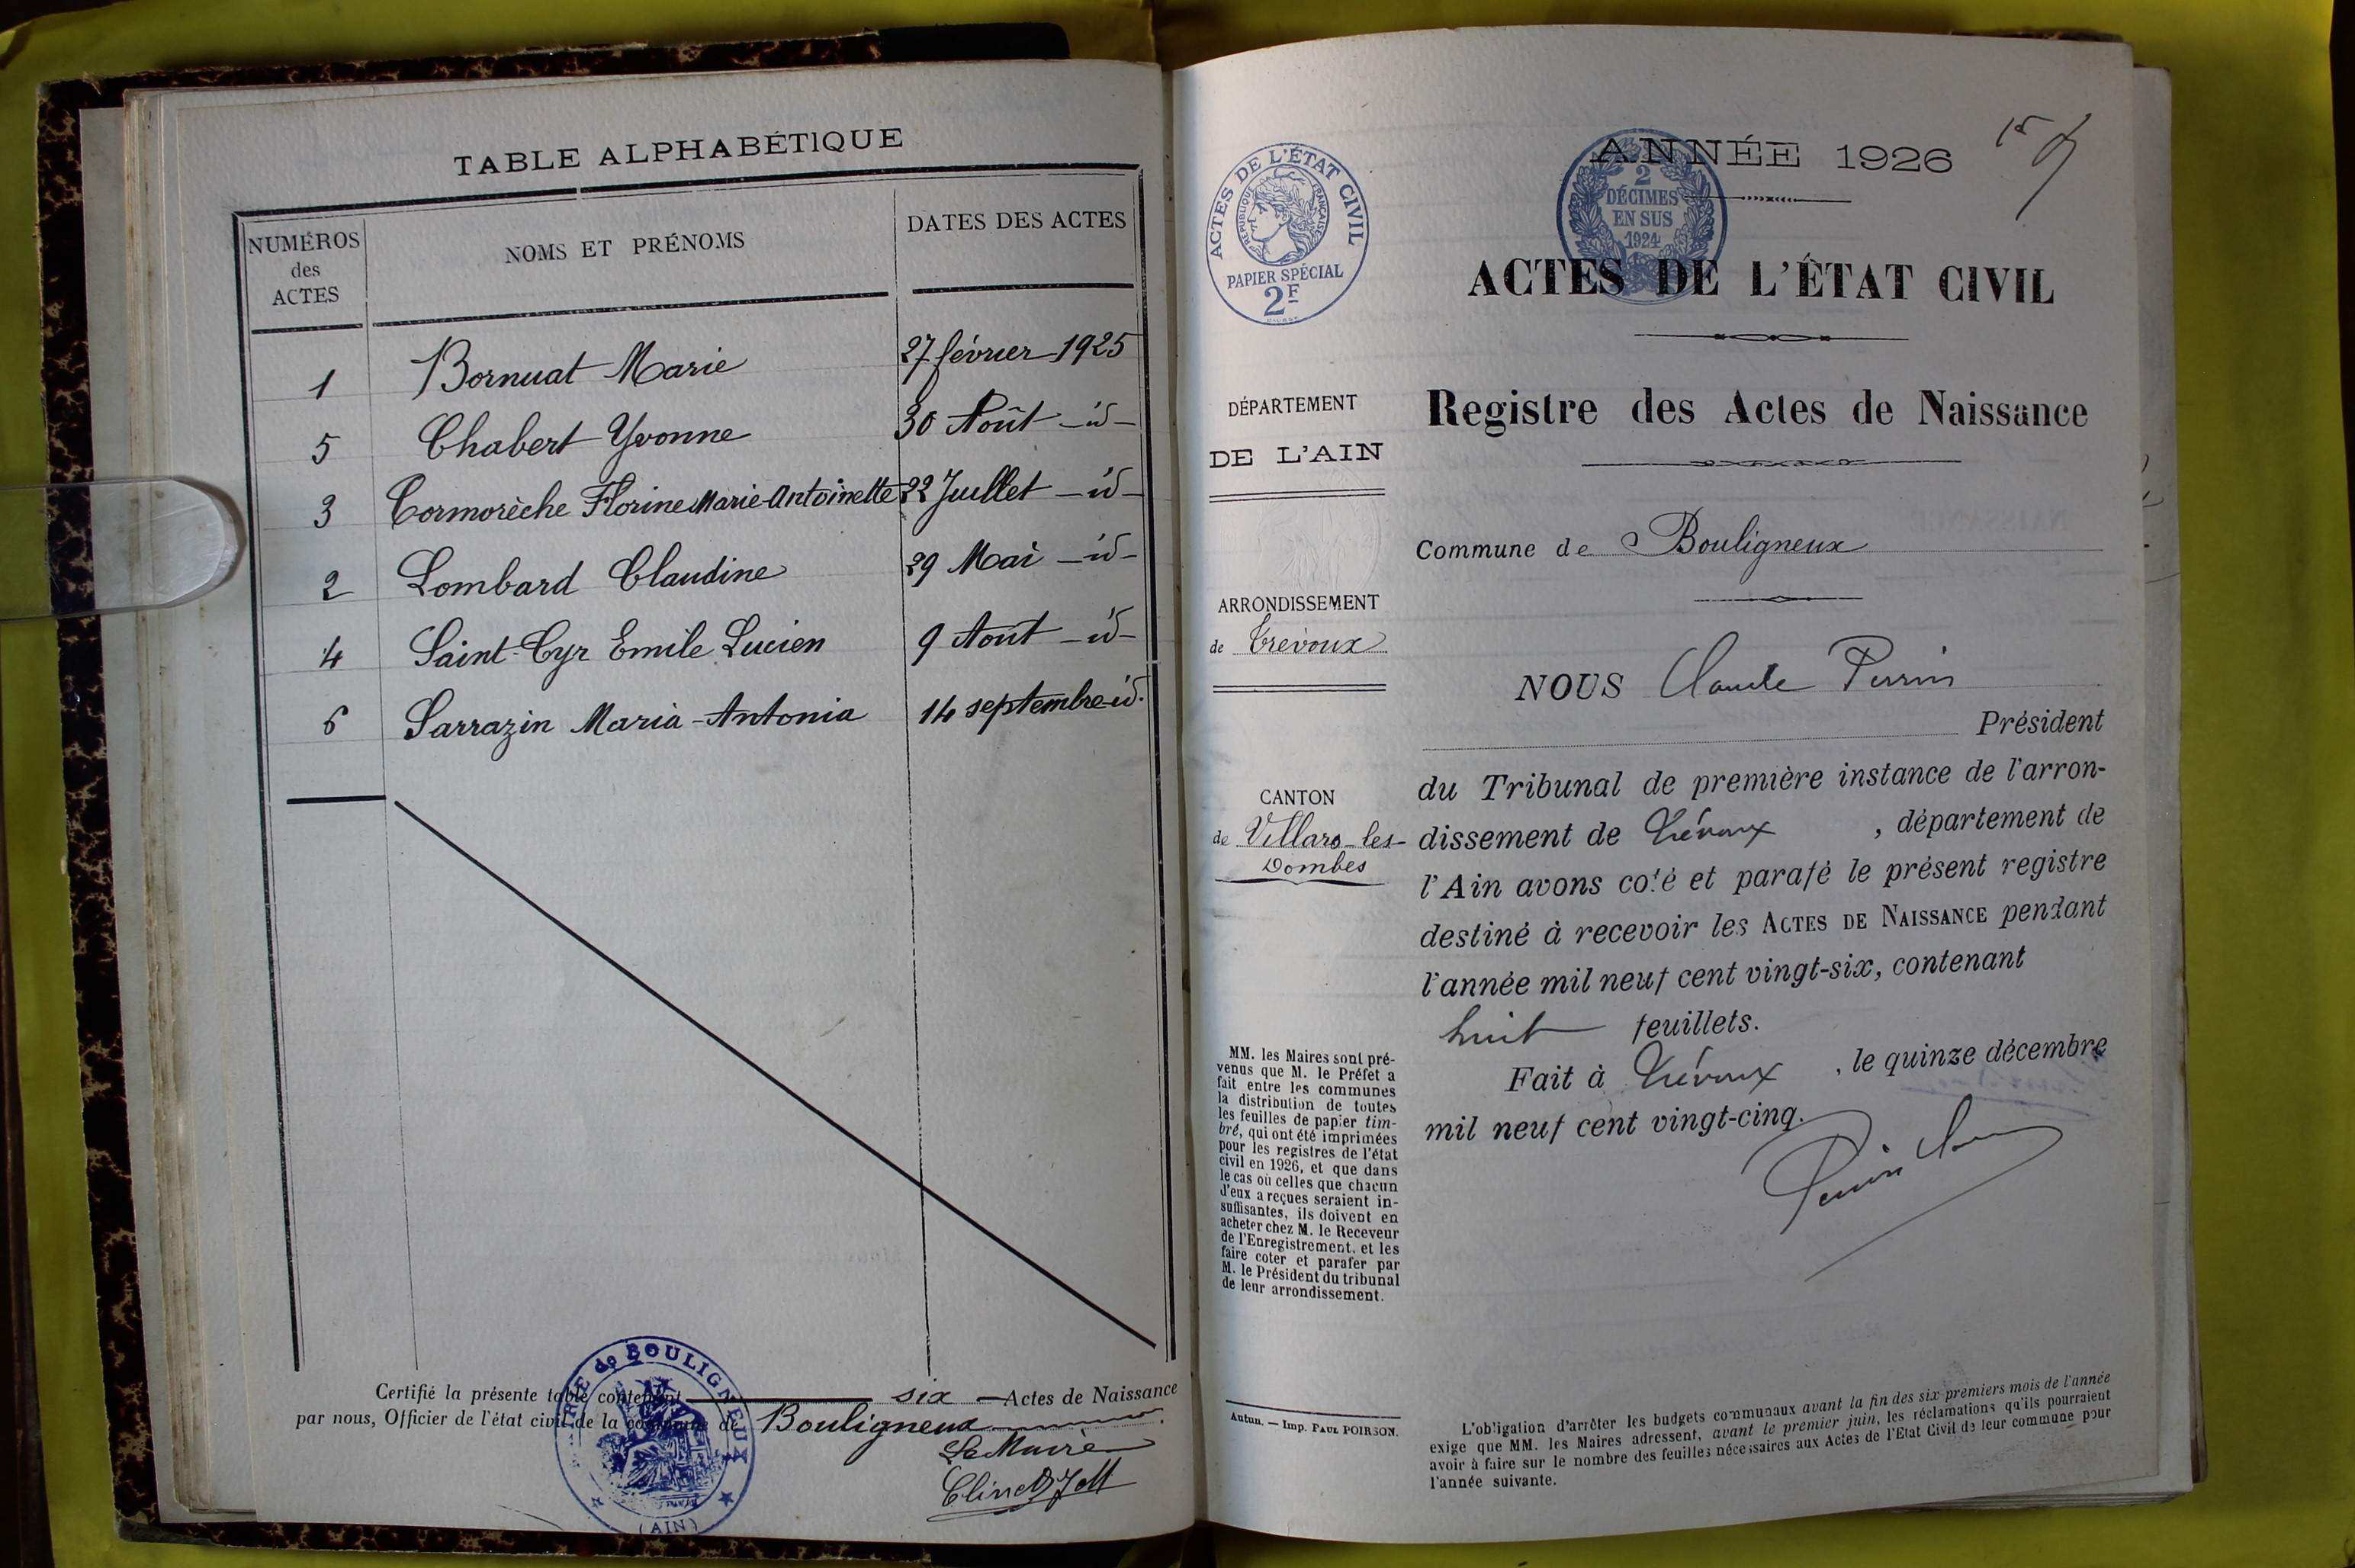 TABLE ALPHABÉTIQUE
NUMÉROS
des
ACTES
NOMS ET PRÉNOMS
DATES DES ACTES
1 Bornuat Marie 27 février 1925
5 Chabert Yvonne 30 Août -id-
3 Cormorèche Florine Marie-Antoinette 22 Juillet -id-
2 Lombard Claudine 29 Mai -id-
4 Saint-Cyr Emile Lucien 9 Août -id-
6 Sarrazin Maria-Antonia 14 septembre -id.
Certifié la présente table contenant six Actes de Naissance
par nous, Officier de l'état civil de la commune de Bouligneux
Le Maire
MAIRIE de BOULIGNEUX
(AIN)
ACTES DE L'ÉTAT CIVIL
RÉPUBLIQUE FRANÇAISE
PAPIER SPÉCIAL
2F
2
DÉCIMES
EN SUS
1924
ANNÉE 1926
ACTES DE L'ÉTAT CIVIL
Registre des Actes de Naissance
DÉPARTEMENT
DE L'AIN
Commune de Bouligneux
ARRONDISSEMENT
de Trévoux
CANTON
de Villars-les-
Dombes
NOUS Claude Perrin
Président
du Tribunal de première instance de l'arron-
dissement de Trévoux, département de
l'Ain avons coté et parafé le présent registre
destiné à recevoir les ACTES DE NAISSANCE pendant
l'année mil neuf cent vingt-six, contenant
huit feuillets.
Fait à Trévoux, le quinze décembre
mil neuf cent vingt-cinq.
MM. les Maires sont pré-
venus que M. le Préfet a
fait entre les communes
la distribution de toutes
les feuilles de papier tim-
bré, qui ont été imprimées
pour les registres de l'état
civil en 1926, et que dans
le cas où celles que chacun
d'eux a reçues seraient in-
suffisantes, ils doivent en
acheter chez M. le Receveur
de l'Enregistrement, et les
faire coter et parafer par
M. le Président du tribunal
de leur arrondissement.
Autun. — Imp. PAUL POIRSON.
L'obligation d'arrêter les budgets communaux avant la fin des six premiers mois de l'année
exige que MM. les Maires adressent, avant le premier juin, les réclamations qu'ils pourraient
avoir à faire sur le nombre des feuilles nécessaires aux Actes de l'Etat Civil de leur commune pour
l'année suivante.